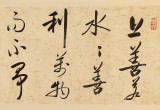 上善若
水〻善
利萬物
而不爭